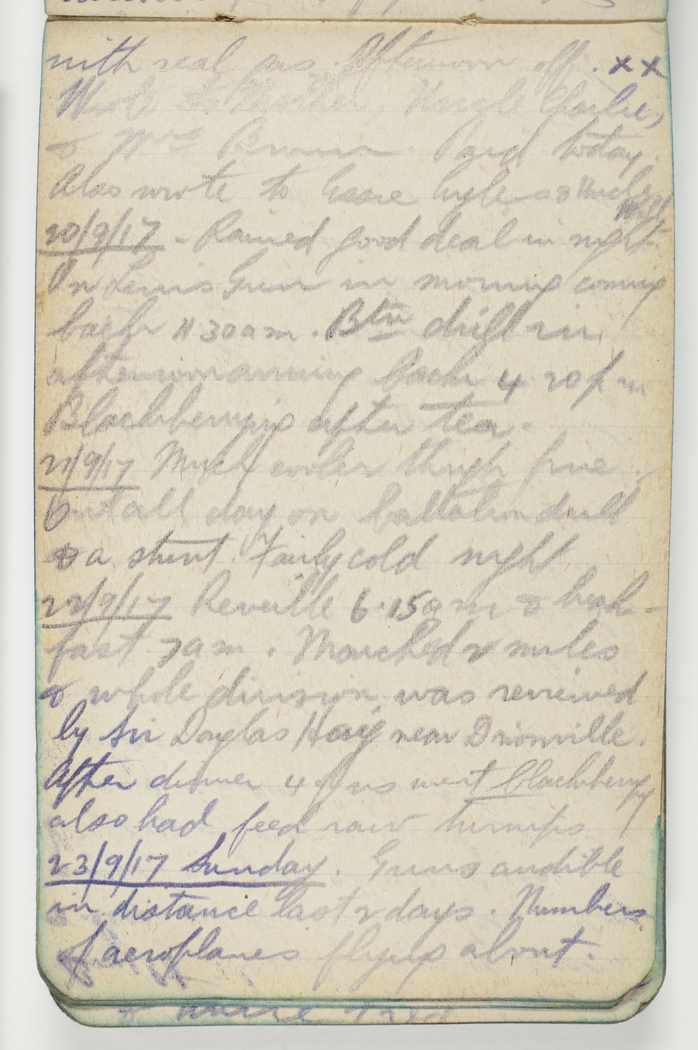 with real gas. Afternoon off. xx
Wrote to Mother, Uncle Charlie,
& Mrs Brown. Paid today.
Also wrote to Lyle & Uncle
20/9/17 - Rained good deal in night.
On Lewis Gun in morning coming
back 11.30am. Btn drill in
afternoon arriving back 4.20pm
Blackberrying after tea.
21/9/17 Much cooler though fine.
Out all day on battalion drill
& a stunt. Fairly cold night
22/9/17 Reveille 6.15am & break-
fast 7am. Marched 2 miles
& whole division was reviewed
by Sir Douglas Haig near Drionville.
After dinner 4 of us went blackberrying
also had feed raw turnips
23/9/17 Sunday. Guns audible
in distance last 2 days. Numbers
of aeroplanes flying about.